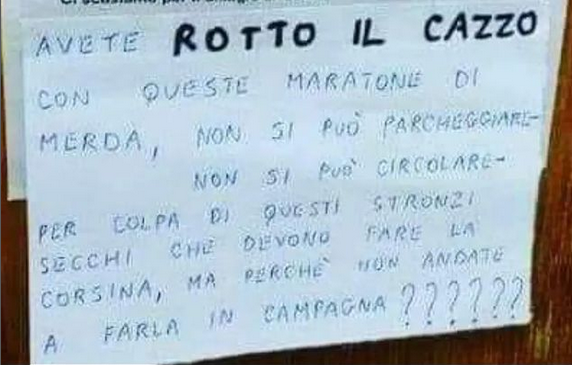 AVETE ROTTO IL CAZZO
CON QUESTE MARATONE DI
MERDA, NON SI PUÒ PARCHEGGIARE-
NON SI PUÒ CIRCOLARE-
PER COLPA DI QUESTI STRONZI
SECCHI CHE DEVONO FARE LA
CORSINA, MA PERCHÈ NON ANDATE
A FARLA IN CAMPAGNA ??????